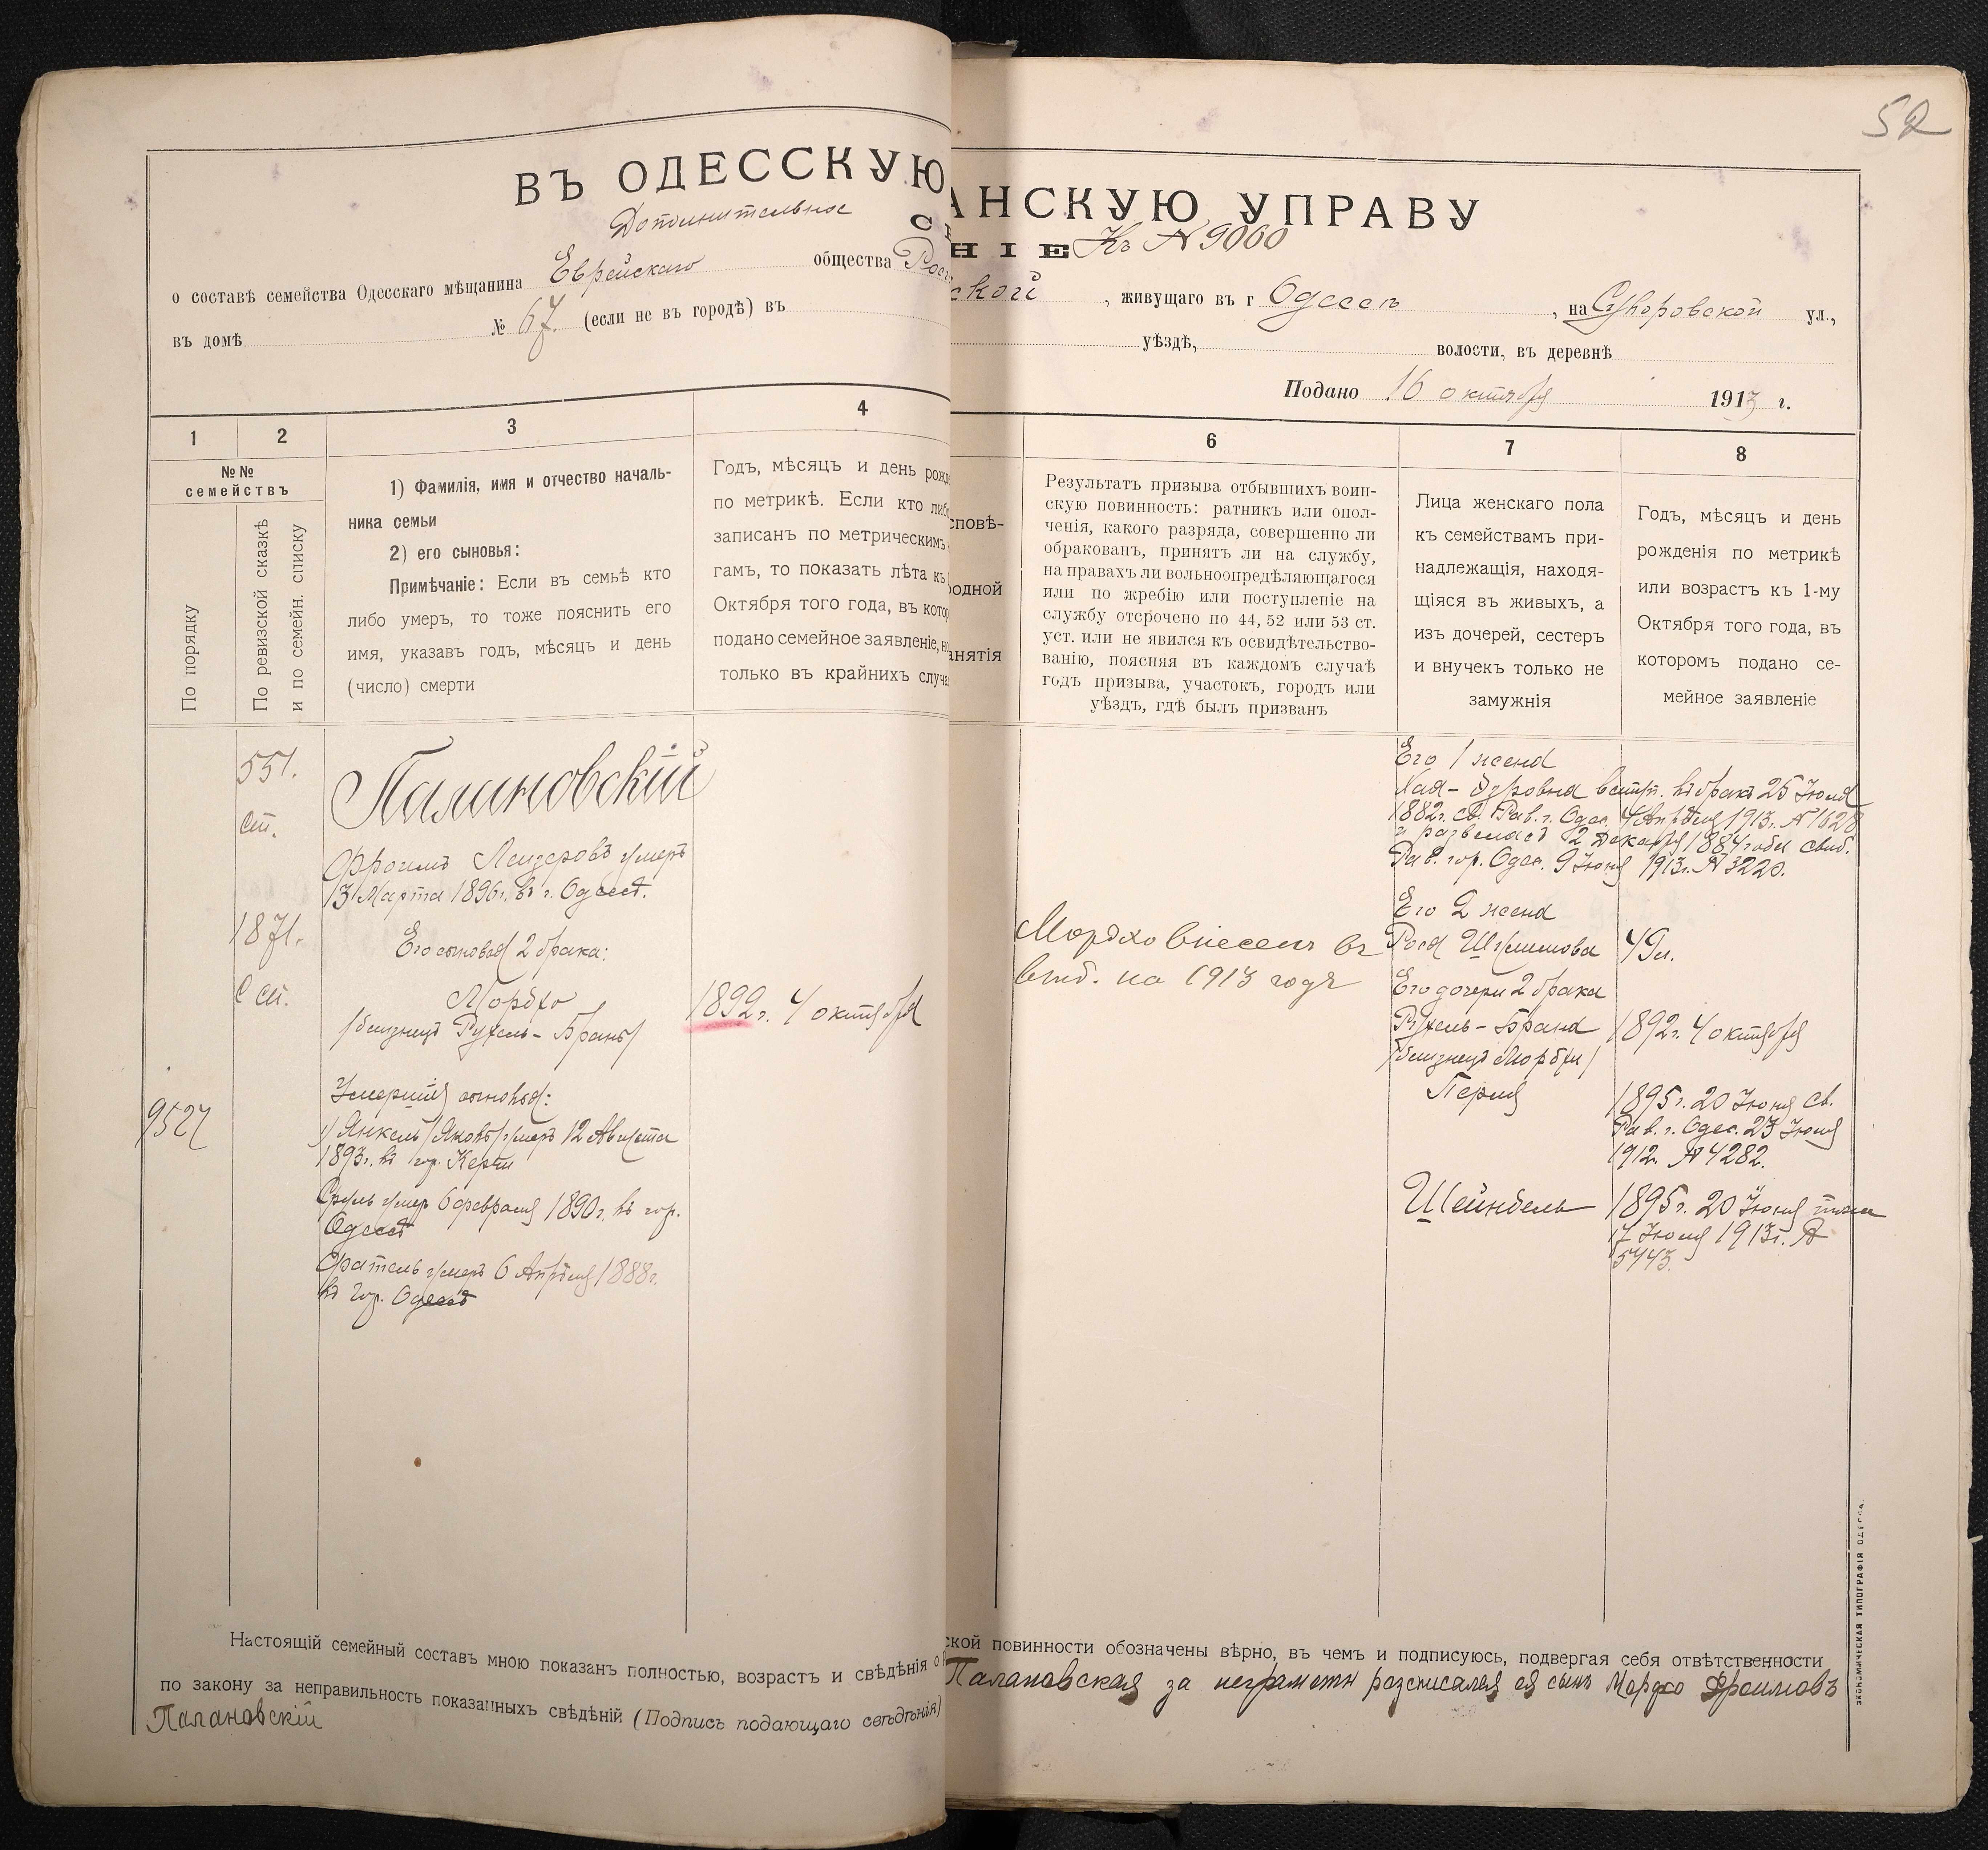 52
ВЪ ОДЕССКУЮ
АНСКУЮ УПРАВУ
Дополнительное
НІЕ Къ № 9060
о составѣ семейства Одесскаго мѣщанина Еврейскаго общества
ской, живущаго въ г Одессѣ, на Суворовской ул.,
въ домѣ № 67. (если не въ городѣ) въ
уѣздѣ, волости, въ деревнѣ
Подано 16 октября 1913 г.
1
2
3
4
6
7
8
№№
семействъ
По порядку
По ревизской сказкѣ
и по семейн. списку
1) Фамилія, имя и отчество началь-
ника семьи
2) его сыновья:
Примѣчаніе: Если въ семьѣ кто
либо умеръ, то тоже пояснить его
имя, указавъ годъ, мѣсяцъ и день
(число) смерти
Годъ, мѣсяцъ и день рожд
по метрикѣ. Если кто либ
записанъ по метрическимъ
гамъ, то показать лѣта къ
Октября того года, въ котор
подано семейное заявленіе, н
только въ крайнихъ случа
сповѣ-
родной
анятія
Результатъ призыва отбывшихъ воин-
скую повинность: ратникъ или опол-
ченія, какого разряда, совершенно ли
обракованъ, принятъ ли на службу,
на правахъ ли вольноопредѣляющагося
или по жребію или поступленіе на
службу отсрочено по 44, 52 или 53 ст.
уст. или не явился къ освидѣтельство-
ванію, поясняя въ каждомъ случаѣ
годъ призыва, участокъ, городъ или
уѣздъ, гдѣ былъ призванъ
Лица женскаго пола
къ семействамъ при-
надлежащія, находя-
щіяся въ живыхъ, а
изъ дочерей, сестеръ
и внучекъ только не
замужнія
Годъ, мѣсяцъ и день
рожденія по метрикѣ
или возрастъ къ 1-му
Октября того года, въ
которомъ подано се-
мейное заявленіе
551.
сп.
1871.
с сп.
9527
Палановскій
Фроимъ Лейзеровъ умеръ
13 Марта 1896 г. въ г. Одессѣ.
Его сыновья 2 брака:
Мордко
/близнецъ Рухель-Браны/
1892 г. 4 октября
Умершія сыновья:
1) Янкель /Яковъ/ умеръ 12 Августа
1893 г. въ гор. Керчи
Сруль умер 6 февраля 1890 г. въ гор.
Одессѣ
умеръ 6 Апрѣля 1888 г.
въ гор. Одессѣ
Мордко внесенъ въ
на 1913 годъ
Его 1 жена
Хая- вступ. въ бракъ 25 Іюля
1882 г. св. Рав. г. Одес. 4 Апрѣля 1913 г. № 1628
и развелась 12 Декабря 1884 года свид.
Рав. гор. Одес. 9 Іюня 1913 г. № 3220.
Его 2 жена
Роса Шулимова 49 л.
Его дочери 2 брака
Рухель-Брана 1892 г. 4 октября
/близнецъ Мордки/
Перля 1895 г. 20 Іюня св.
Рав. г. Одес. 23 Іюля
1912 г. № 4282.
Шейндель 1895 г. 20 Іюня
17 Іюля 1913 г. №
5443.
Настоящій семейный составъ мною показанъ полностью, возрастъ и свѣдѣнія о
ской повинности обозначены вѣрно, въ чемъ и подписуюсь, подвергая себя отвѣтственности
по закону за неправильность показанныхъ свѣдѣній (Подпись подающаго свѣдѣнія)
Палановская за неграмотн росписался ея сынъ Мордко Фроимовъ
Палановскій
ЭКОНОМИЧЕСКАЯ ТИПОГРАФІЯ ОДЕССА.